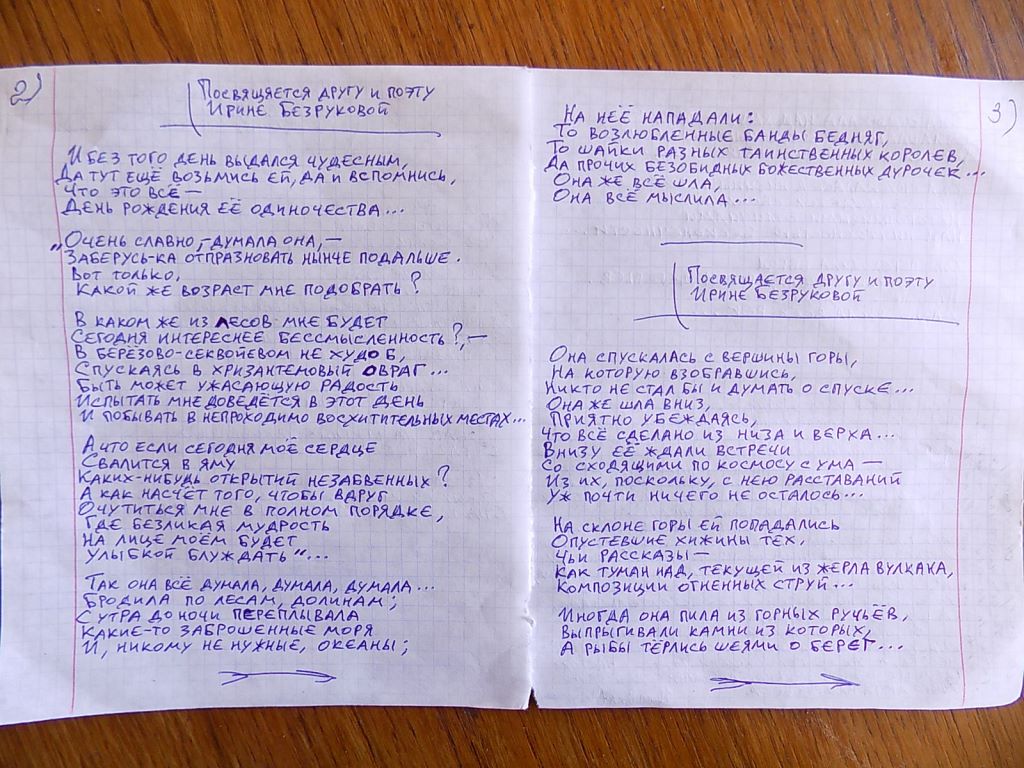 2)
Посвящается другу и поэту
Ирине Безруковой
И без того день выдался чудесным,
Да тут ещё возьмись ей, да и вспомнись,
Что это всё —
День рождения её одиночества...
„Очень славно, – думала она, —
Заберусь-ка отпразновать нынче подальше.
Вот только,
Какой же возраст мне подобрать?
В каком же из лесов мне будет
Сегодня интереснее бессмысленность?, —
В берёзово-секвойевом не худо б,
Спускаясь в хризантемовый овраг...
Быть может ужасающую радость
Испытать мне доведётся в этот день
И побывать в непроходимо восхитительных местах...
А что если сегодня моё сердце
Свалится в яму
Каких-нибудь открытий незабвенных?
А как насчёт того, чтобы вдруг
Очутиться мне в полном порядке,
Где безликая мудрость
На лице моём будет
Улыбкой блуждать"...
Так она всё думала, думала, думала...
Бродила по лесам, долинам;
С утра до ночи переплывала
Какие-то заброшенные моря
И, никому не нужные, океаны;
3)
На неё нападали:
То возлюбленные банды бедняг,
То шайки разных таинственных королев,
Да прочих безобидных божественных дурочек...
Она же всё шла,
Она всё мыслила...
Посвящается другу и поэту
Ирине Безруковой
Она спускалась с вершины горы,
На которую взобравшись,
Никто не стал бы и думать о спуске...
Она же шла вниз,
Приятно убеждаясь,
Что всё сделано из низа и верха...
Внизу её ждали встречи
Со сходящими по космосу с ума —
Из их, поскольку, с нею расставаний
Уж почти ничего не осталось...
На склоне горы ей попадались
Опустевшие хижины тех,
Чьи рассказы —
Как туман над, текущей из жерла вулкана,
Композиции огненных струй...
Иногда она пила из горных ручьёв,
Выпрыгивали камни из которых,
А рыбы тёрлись шеями о берег...